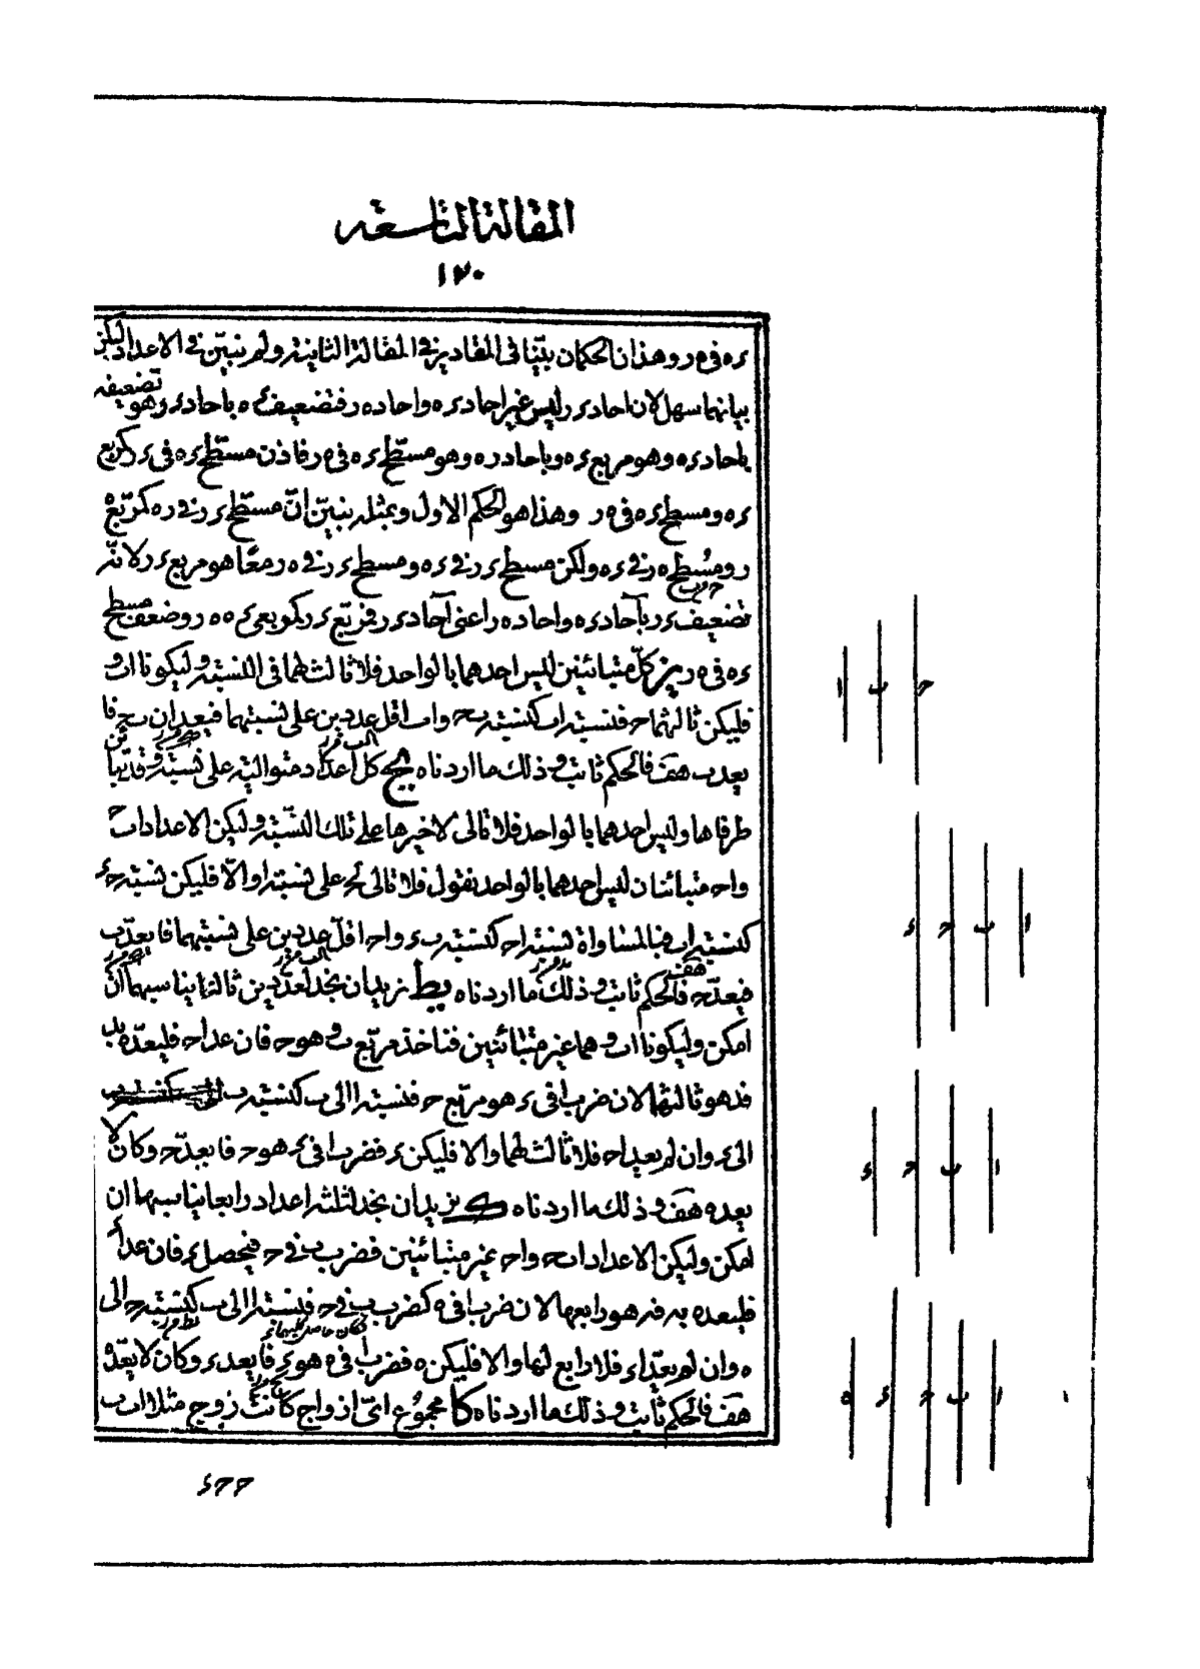 المقالة التاسعة
١٧٠
ءه في ه ر وهذان الحكمان بيّنا في المقادير في المقالة الثانية ولم نبيّن في الاعداد لكن
بيانهما سهل لان احاد ءر ليس غير احاد ءه واحاد ه ر فتضعيف ءه باحاد ءر وهو تضعيفه
باحاد ءه وهو مربع ءه وباحاد ره وهو مسطح ءه في ه ر فاذن مسطح ءه في ءر كمربع
ءه ومسطح ءه في ه ر وهذا هو الحكم الاول وبمثله نبيّن انّ مسطح ءر في ره كمربّع
ر ه ومسطح ه ر في ءه ولكن مسطح ءر في ءه ومسطح ءر في ه ر معًا هو مربع ءر لانّه
تضعيف ءر باحاد ءه واحاد ه ر اعنى آحاد ءر فمربّع ءر كمربعى ءه ه ر وضعف مسطح
ءه في ه ر يز كلّ متبائنين ليس احدهما بالواحد فلا ثالث لهما فى النسبة وليكونا ا ب و
فليكن ثالثهما ح فنسبة ا ب كنسبة ب ح و ا ب اقل عددين على نسبتهما فيعدان ب ح فا
يعد ب هف فالحكم ثابت وذلك ما اردناه يح كل اعداد متوالية على نسبة وتباين
طرفاها وليس احدهما بالواحد فلا تالى لاخيرها على تلك النسبة وليكن الاعداد ا ب ح
و ا ح متبائنان ليس احدهما بالواحد نقول فلا تالى لح على نسبة ا ب والّا فليكن نسبة ح ء
كنسبة ا ب فبالمساواة نسبة ا ح كنسبة ب ء و ا ح اقلّ عددين على نسبتهما فا يعدّ ب
فيعدّ ح هف فالحكم ثابت وذلك ما اردناه يط نريد ان نجد لعددين ثالثا يناسبهما ان
امكن وليكونا ا ب وهما غير متبائنين فناخذ مربّع ب وهو ح فان عدا ح فليعدّه بء
فء هو ثالثهما لان ضرب ا فى ء هو مربّع ح فنسبة ا الى ب كنسبة ب
الى ء وان لم يعد ا ح فلا ثالث لهما والا فليكن ء فضرب ا فى ء هو ح فا يعدّ ح وكان لا
يعده هف وذلك ما اردناه ك نريد ان نجد لثلثة اعداد رابعا يناسبها ان
امكن وليكن الاعداد ا ب ح و ا ح غير متبائنين فضرب ب في ح فيحصل ء فان عد ا ء
فليعده به فه هو رابعها لان ضرب ا في ه كضرب ب في ح فنسبة ا الى ب كنسبة ح الى
ه وان لم يعدّ ا ء فلا رابع لها والا فليكن ه فضرب ا في ه هو ء فا يعد ء وكان لا يعدّه
هف فالحكم ثابت وذلك ما اردناه كا مجموع اىّ ازواج كانت زوج مثلا ا ب ب
ح ح ء
ا ب ح
ا ب ح ء
ا ب ح ء
ا ب ح ء ه